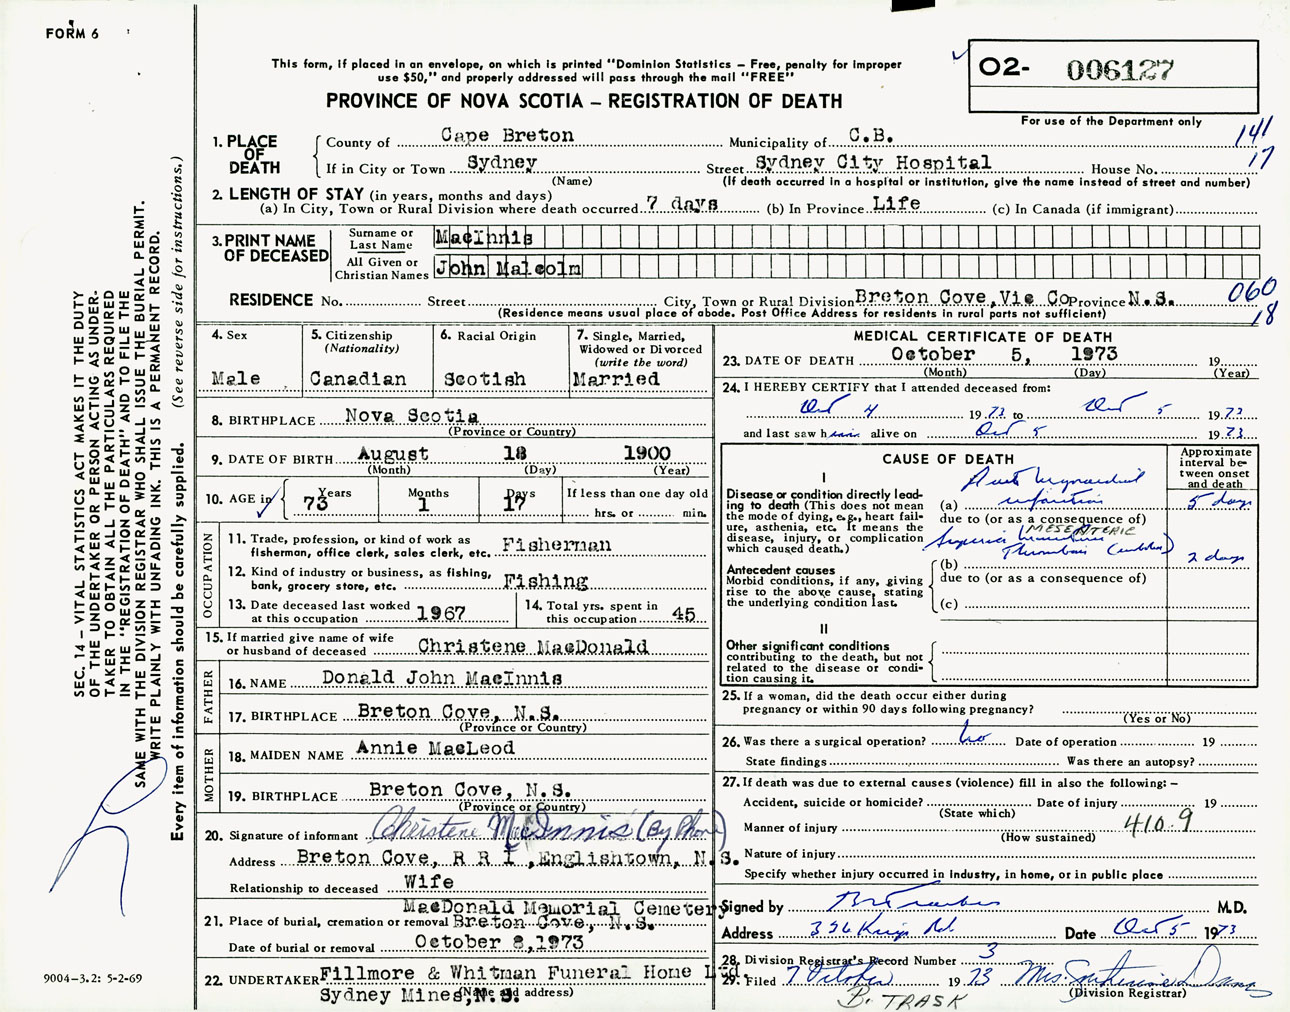 FORM 6
This form, if placed in an envelope, on which is printed "Dominion Statistics – Free, penalty for improper
use $50," and properly addressed will pass through the mail "FREE"
PROVINCE OF NOVA SCOTIA – REGISTRATION OF DEATH
O2- 006127
For use of the Department only
141
17
1. PLACE OF DEATH
County of Cape Breton Municipality of C.B.
If in City or Town Sydney Street Sydney City Hospital House No.
(Name) (If death occurred in a hospital or institution, give the name instead of street and number)
2. LENGTH OF STAY (in years, months and days)
(a) In City, Town or Rural Division where death occurred 7 days (b) In Province Life (c) In Canada (if immigrant)
3. PRINT NAME OF DECEASED
Surname or Last Name MacInnis
All Given or Christian Names John Malcolm
RESIDENCE No. Street City, Town or Rural Division Breton Cove, Vic Co Province N.S.
(Residence means usual place of abode. Post Office Address for residents in rural parts not sufficient)
060
18
4. Sex
Male
5. Citizenship
(Nationality)
Canadian
6. Racial Origin
Scotish
7. Single, Married,
Widowed or Divorced
(write the word)
Married
8. BIRTHPLACE Nova Scotia
(Province or Country)
9. DATE OF BIRTH August 18 1900
(Month) (Day) (Year)
10. AGE in
Years 73 Months 1 Days 17
If less than one day old
hrs. or min.
OCCUPATION
11. Trade, profession, or kind of work as
fisherman, office clerk, sales clerk, etc. Fisherman
12. Kind of industry or business, as fishing,
bank, grocery store, etc. Fishing
13. Date deceased last worked
at this occupation 1967
14. Total yrs. spent in
this occupation 45
15. If married give name of wife
or husband of deceased Christene MacDonald
FATHER
16. NAME Donald John MacInnis
17. BIRTHPLACE Breton Cove, N.S.
(Province or Country)
MOTHER
18. MAIDEN NAME Annie MacLeod
19. BIRTHPLACE Breton Cove, N.S.
(Province or Country)
20. Signature of informant Christene MacInnis (By Phone)
Address Breton Cove, R R 1, Englishtown, N.S.
Relationship to deceased Wife
MacDonald Memorial Cemetery
21. Place of burial, cremation or removal Breton Cove, N.S.
Date of burial or removal October 8, 1973
22. UNDERTAKER Fillmore & Whitman Funeral Home Ltd.
Sydney Mines, N.S.
(Name and address)
MEDICAL CERTIFICATE OF DEATH
23. DATE OF DEATH October 5, 1973 19
(Month) (Day) (Year)
24. I HEREBY CERTIFY that I attended deceased from:
Oct 4 1973 to Oct 5 1973
and last saw him alive on Oct 5 1973
CAUSE OF DEATH
Approximate interval between onset and death
I
Disease or condition directly leading to death (This does not mean
the mode of dying, e.g., heart failure, asthenia, etc. It means the
disease, injury, or complication
which caused death.)
(a) Acute Myocardial infarction 5 days
due to (or as a consequence of)
MESENTERIC
Superior
Thrombosis (embolus)
(b) 2 days
due to (or as a consequence of)
(c)
Antecedent causes
Morbid conditions, if any, giving
rise to the above cause, stating
the underlying condition last.
II
Other significant conditions
contributing to the death, but not
related to the disease or condition causing it.
25. If a woman, did the death occur either during
pregnancy or within 90 days following pregnancy?
(Yes or No)
26. Was there a surgical operation? No Date of operation 19
State findings Was there an autopsy?
27. If death was due to external causes (violence) fill in also the following: –
Accident, suicide or homicide? Date of injury 19
(State which)
Manner of injury 410.9
(How sustained)
Nature of injury
Specify whether injury occurred in industry, in home, or in public place
Signed by M.D.
Address 336 Kings Rd. Date Oct 5 1973
28. Division Registrar's Record Number 3
29. Filed 7 October 1973 Mrs.
(Division Registrar)
B. TRASK
SEC. 14 – VITAL STATISTICS ACT MAKES IT THE DUTY
OF THE UNDERTAKER OR PERSON ACTING AS UNDER-
TAKER TO OBTAIN ALL THE PARTICULARS REQUIRED
IN THE "REGISTRATION OF DEATH" AND TO FILE THE
SAME WITH THE DIVISION REGISTRAR WHO SHALL ISSUE THE BURIAL PERMIT.
WRITE PLAINLY WITH UNFADING INK. THIS IS A PERMANENT RECORD.
Every item of information should be carefully supplied. (See reverse side for instructions.)
9004–3.2: 5-2-69